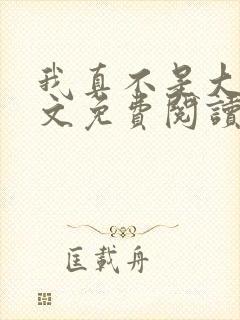 我真不是大
文免費閱讀
匡載舟